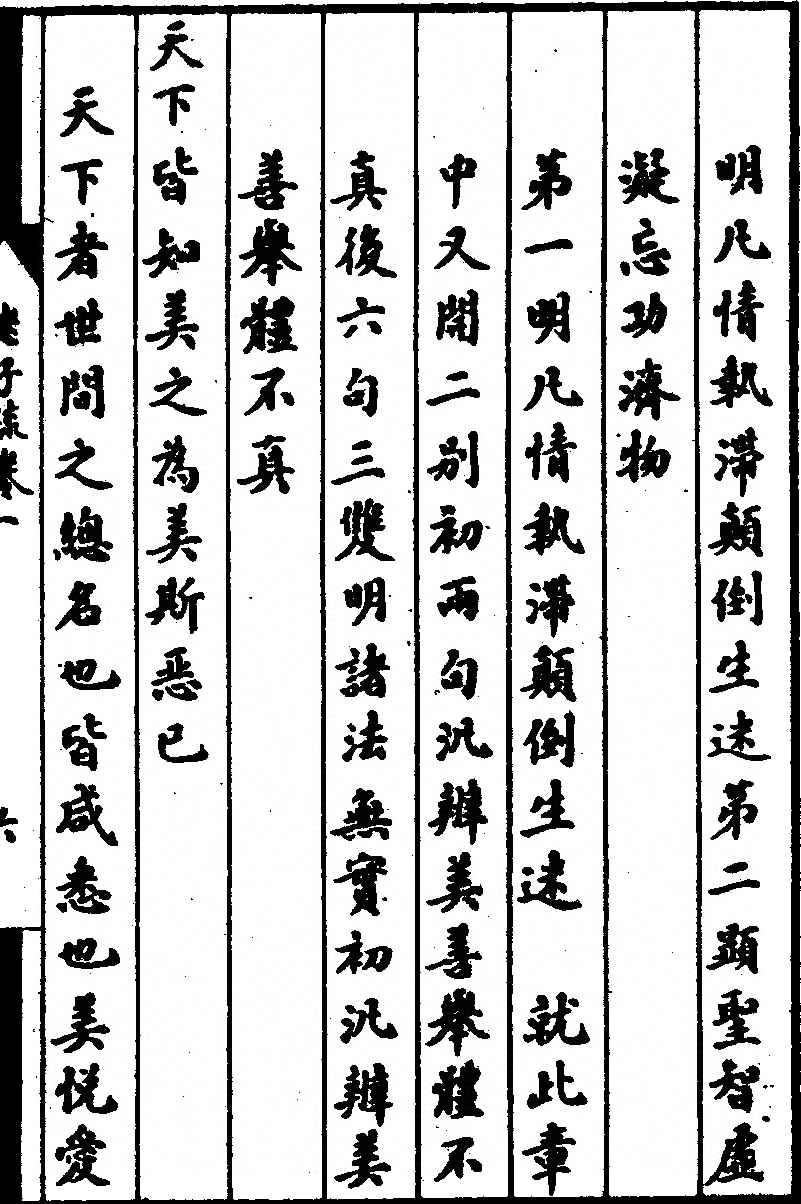 明凡情執滯顛倒生迷第二顯聖智虛
凝忘功濟物
第一明凡情執滯顛倒生迷　就此章
中又開二別初兩句汎辯美善舉體不
真後六句三雙明諸法無實初汎辯美
善舉體不真
天下皆知美之為美斯惡已
天下者世間之總名也皆咸悉也美悅愛
老子疏卷一
六